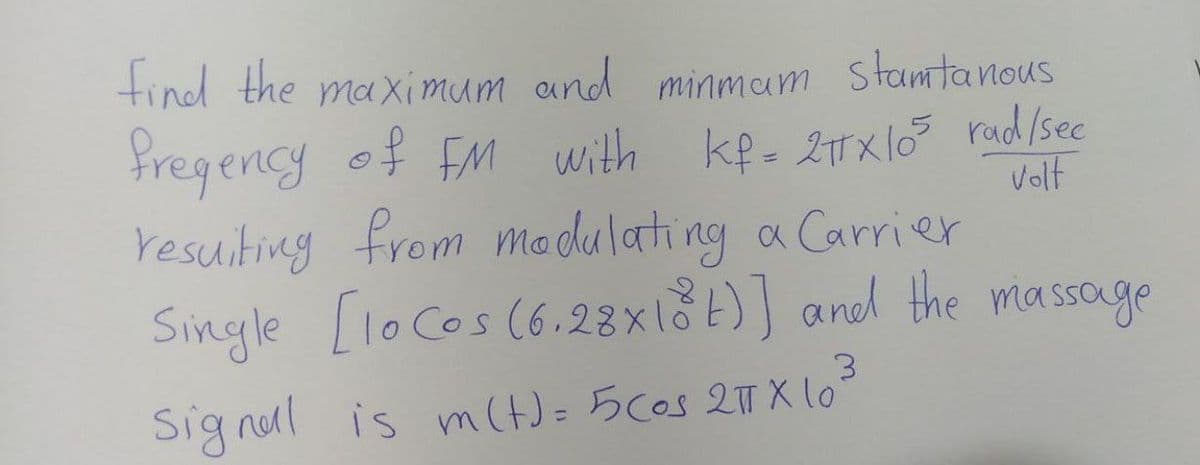 find the maximum and minmam stamtanous
freqency of FM with kf = 2π×10⁵ rad/sec
Volt
resuiting from modulating a Carrier
Single [10 Cos (6.28×10⁸t)] and the massage
Signall is m(t) = 5cos 2π×10³